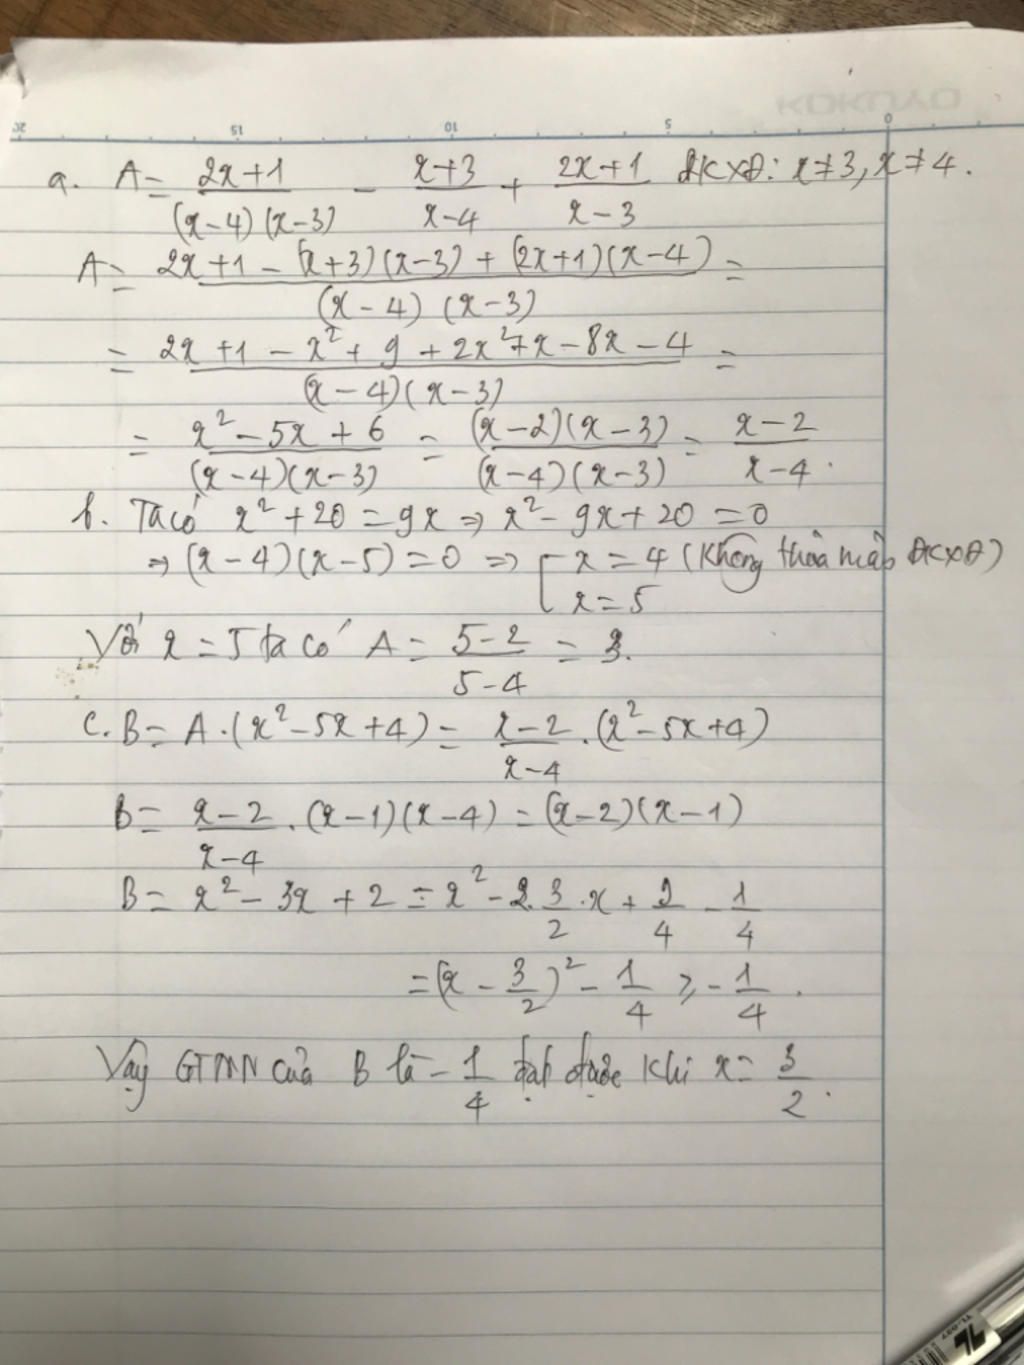 KOKUYO
20 15 10 5 0
a. A = (2x+1)/((x-4)(x-3)) - (x+3)/(x-4) + (2x+1)/(x-3) ĐKXĐ: x ≠ 3, x ≠ 4.
A = (2x+1-(x+3)(x-3)+(2x+1)(x-4))/((x-4)(x-3)) =
= (2x+1-x²+9+2x²+x-8x-4)/((x-4)(x-3)) =
= (x²-5x+6)/((x-4)(x-3)) = ((x-2)(x-3))/((x-4)(x-3)) = (x-2)/(x-4).
b. Ta có x²+20=9x ⇒ x²-9x+20=0
⇒ (x-4)(x-5)=0 ⇒ [ x=4 (Không thỏa mãn ĐKXĐ)
x=5
Với x=5 ta có A = (5-2)/(5-4) = 3.
C. B = A.(x²-5x+4) = (x-2)/(x-4) . (x²-5x+4)
B = (x-2)/(x-4) . (x-1)(x-4) = (x-2)(x-1)
B = x²-3x+2 = x²-2.3/2.x + 9/4 - 1/4
= (x-3/2)² - 1/4 ≥ -1/4.
Vậy GTNN của B là -1/4 đạt được khi x = 3/2.